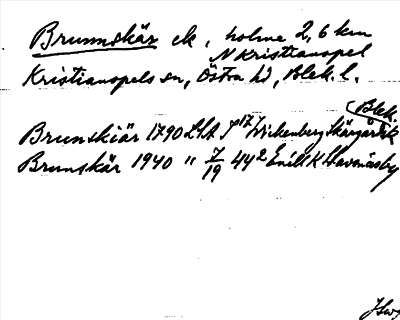 Brunnskär ek, holme 2,6 km
N Kristianopel
Kristianopels sn, Östra hd, Blek. l.
(Blek.
Brunskiär 1790 f 17 Wikenberg Skärgård
Brunskär 1940 " 7/19 44² Enill K